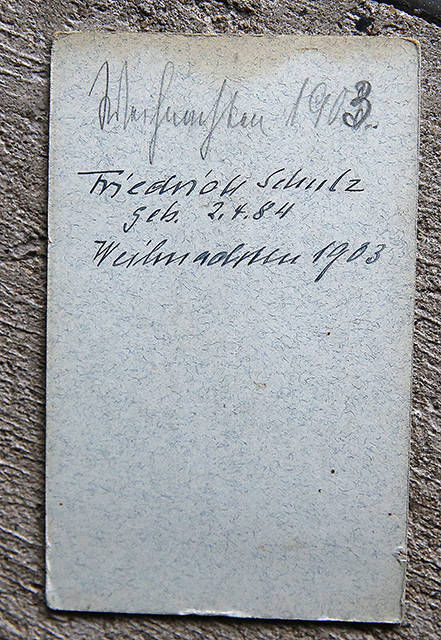 Weihnachten 1903.
Friedrich Schulz
geb. 2.4.84
Weihnachten 1903